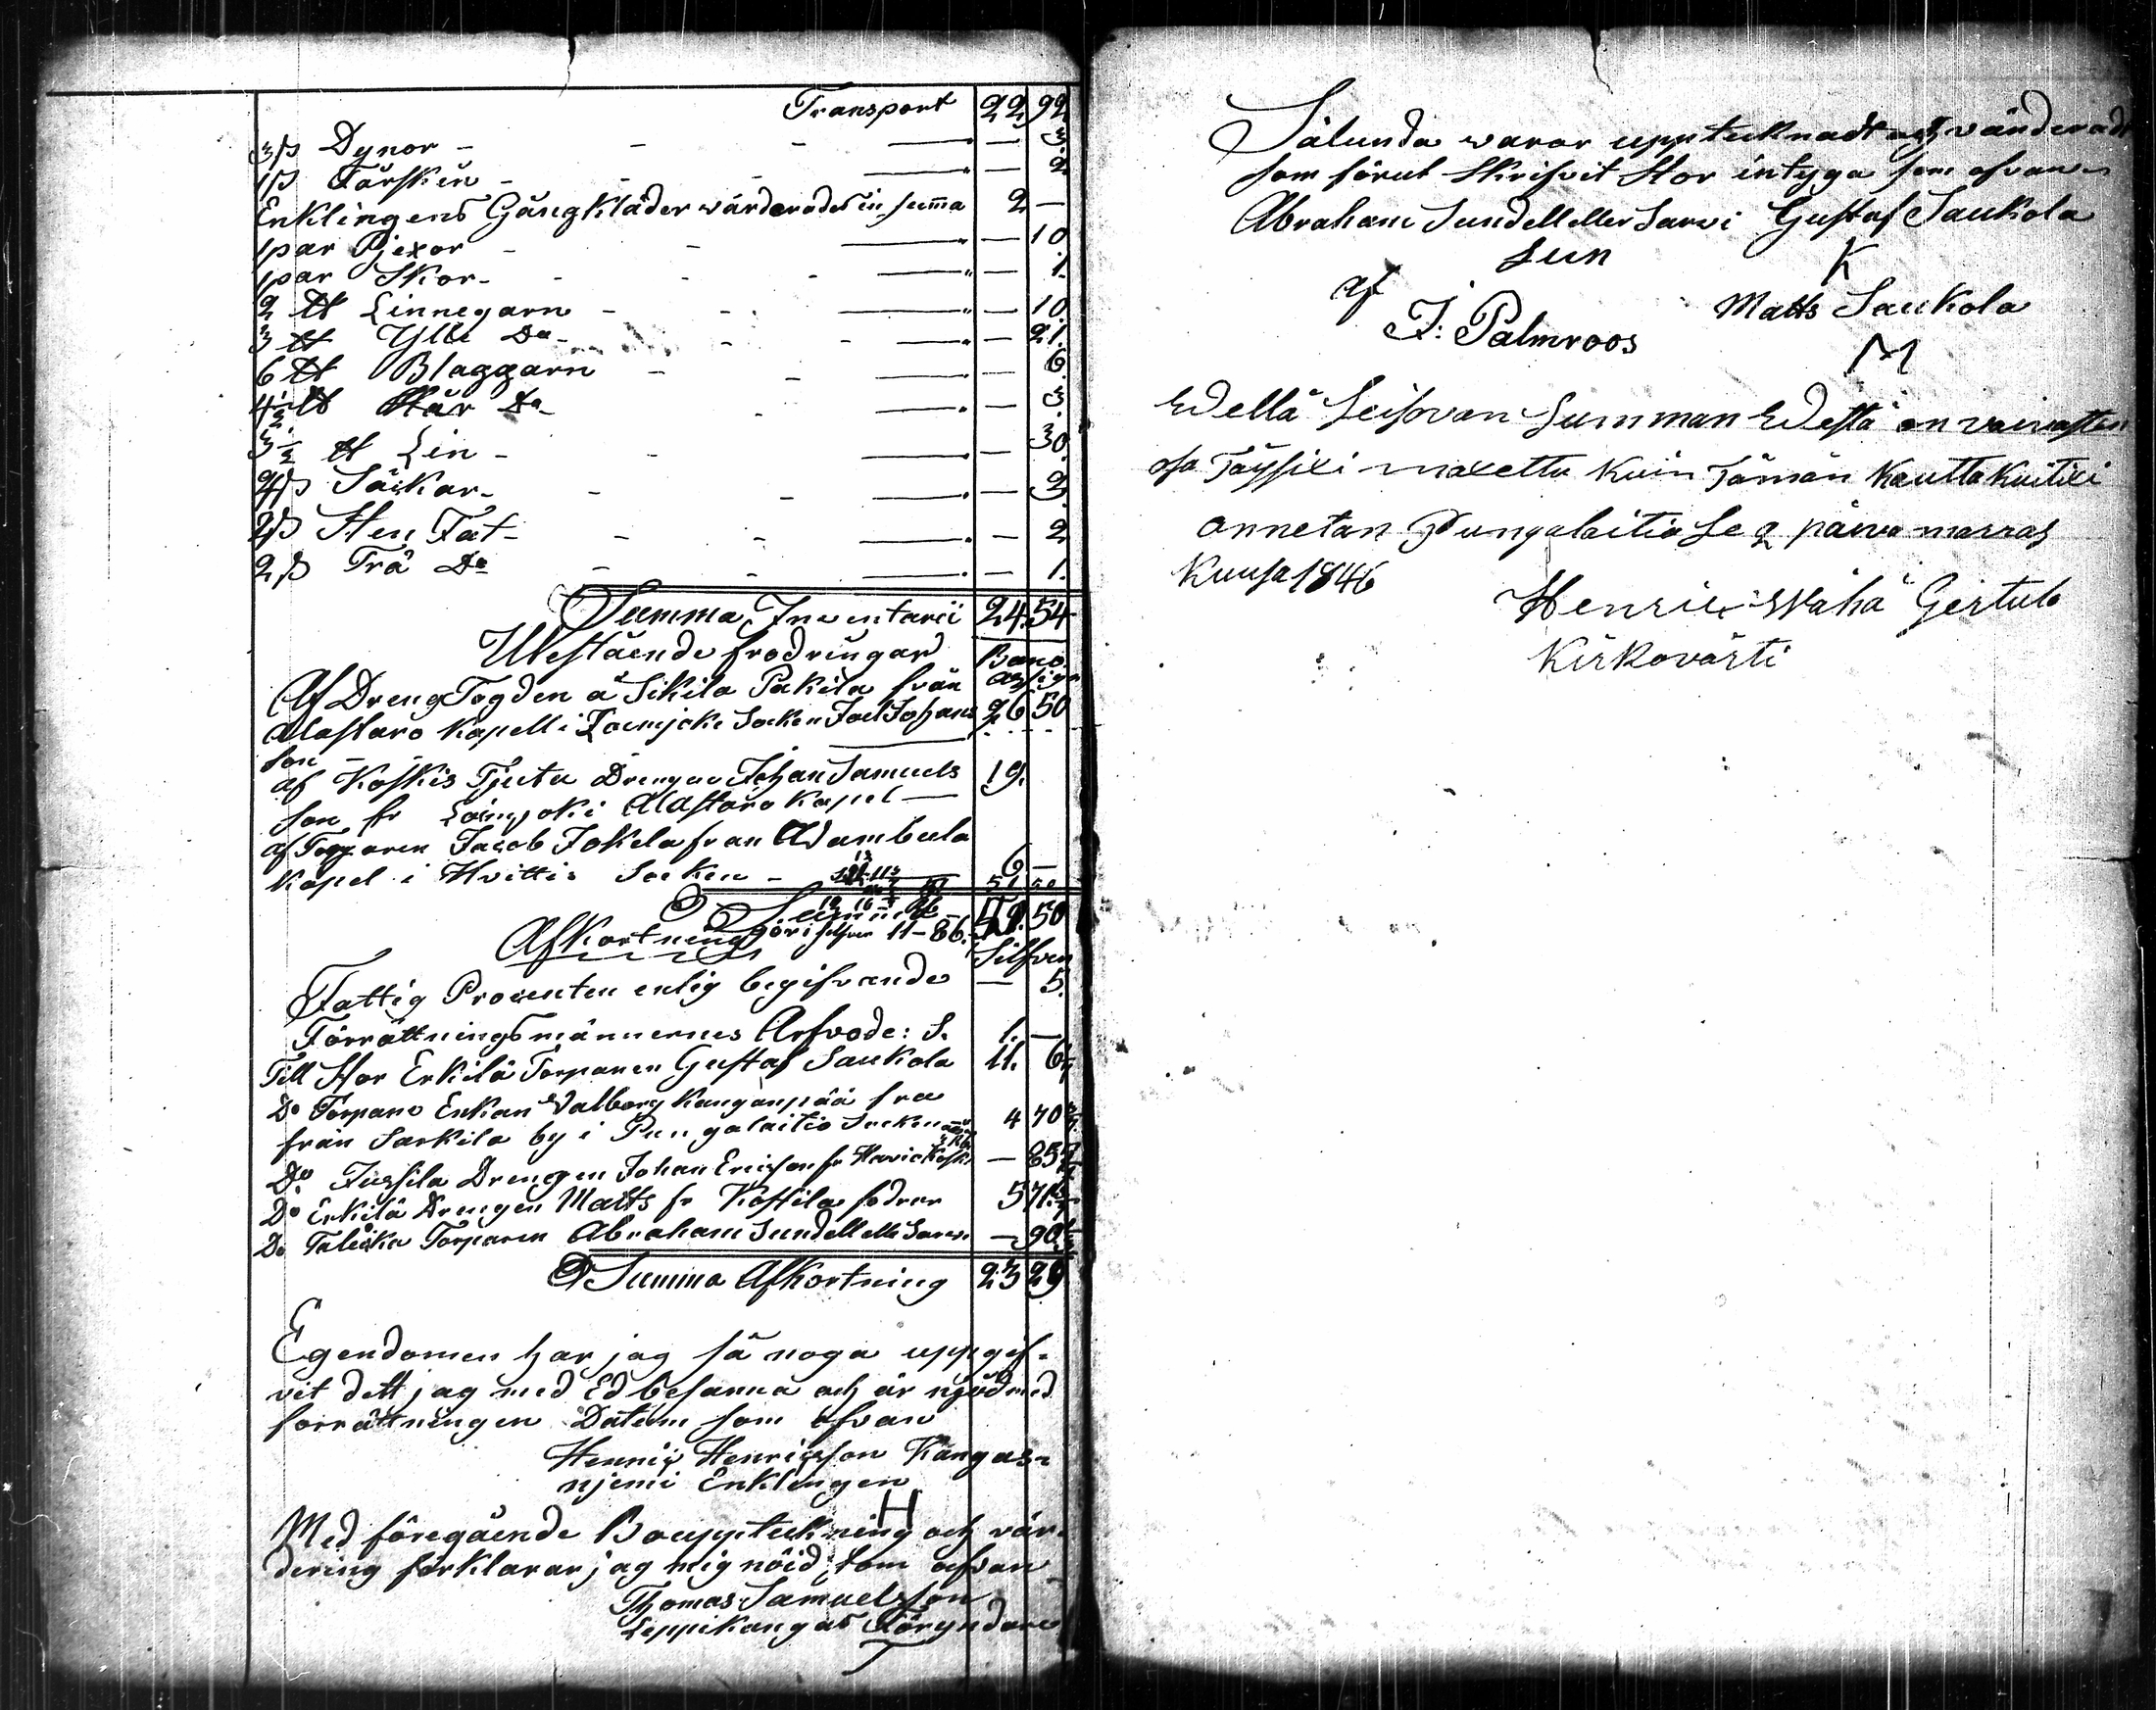 Transport 22 92
3 st Dynor - - - — - 3.
1 st Fårskin - - — - 2.
Enklingens Gångkläder wärderades in summa 2 -
1 par Pjexor - - — - 10
1 par Skor - - - — - 1.
2 ℔ Linnegarn - - — - 10.
3 ℔ Ylle Do - - - — - 21.
6 ℔ Blaggarn - - — - 6.
4½ ℔ Hår Do - - — - 3.
3½ ℔ Lin - - — - 30.
4 st Säckar - - - — - 3
2 st Sten Fat - - - — - 2
2 st Trä Do - - — - 1.
Summa Inventarii 24. 54
Utestående frodringar Banco
Af Dreng Togden å Sikila Pakila från assign
Alastaro Kapell i Loimjoki Socken Joel Johans 26 50
son
af Koskis Tjuta Drengen Johan Samuels 19.
son fr Loimjoki Alastaro Kapel —
af Torparen Jacob Jokela fran
Kapel i Hvittis Socken - 6 -
Summa 50
Afkortning gör i silfver 11-86.
Silfver
Fattig Procenten enlig begifvande — 5.
Förrättningsmännernes Arfvode: S. 1. —
Till Stor Erkilä Torparen Gustaf Saukola 11. 6
Do Torpare Enkan Valborg Kanganpää fra
från Sarkila by i Pungalaitio Socken 4 70
Do Jussila Drengen Johan Ericsson fr — 85
Do Erkilä Drengen Matts fr Kossila fodrar 5 71
Do Torparen Abraham Sundell eller Sarvi — 90
Summa Afkortning 23 29
Egendomen har jag så noga uppgif-
vit dett jag med Ed besanna och är nöjd med
forrättningen Datum som ofvan
Henric Henricsson Kangas-
njemi Enklingen
H
Med föregående Bouppteckning och vär-
dering förklarar jag mig nöid, som ofvan
Thomas Samuelsson
Leppikangas Föryndare
T
Sålunda warar upptecknadt och värderadt
som förut Skrifvit Stor intyga som ofvan
Abraham Sundell eller Sarvi Gustaf Saukola
Sun K
af Matts Saukola
F: Palmroos M
Edellä Seisovan Summan Edestä on vaivasten
osa Täyssixi maxettu Kuin Tämän Kautta Kuitixi
annetan Pungalaitio Se 2 päiwä marras
Kuusa 1846
Henric Wähä Gertub
Kirkovärti